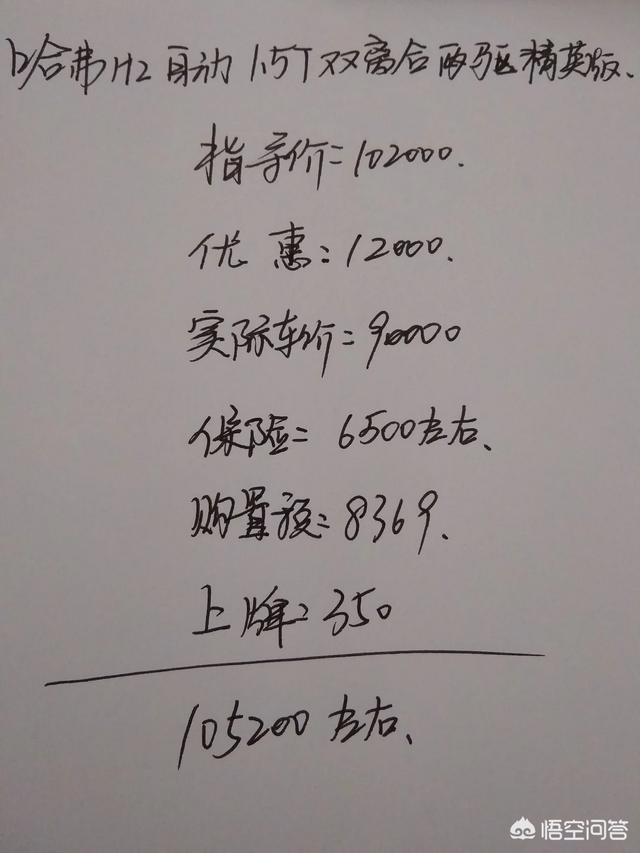 哈弗H2自动1.5T双离合两驱精英版、
指导价=102000.
优惠:12000.
实际车价=90000
保险=6500左右、
购置税=8369.
上牌=350
105200左右、
悟空问答